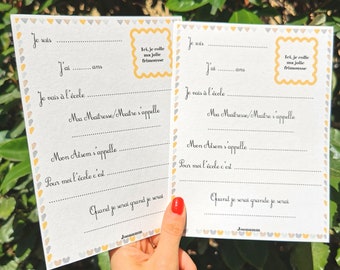 Je suis
Ici, je colle
ma jolie
frimousse
J'ai ans
Je vais à l'école
Ma Maîtresse/Maître s'appelle
Mon Atsem s'appelle
Pour moi l'école c'est
Quand je serai grand je serai
Je suis
Ici, je colle
ma jolie
frimousse
J'ai ans
Je vais à l'école
Ma Maîtresse/Maître s'appelle
Mon Atsem s'appelle
Pour moi l'école c'est
Quand je serai grande je serai